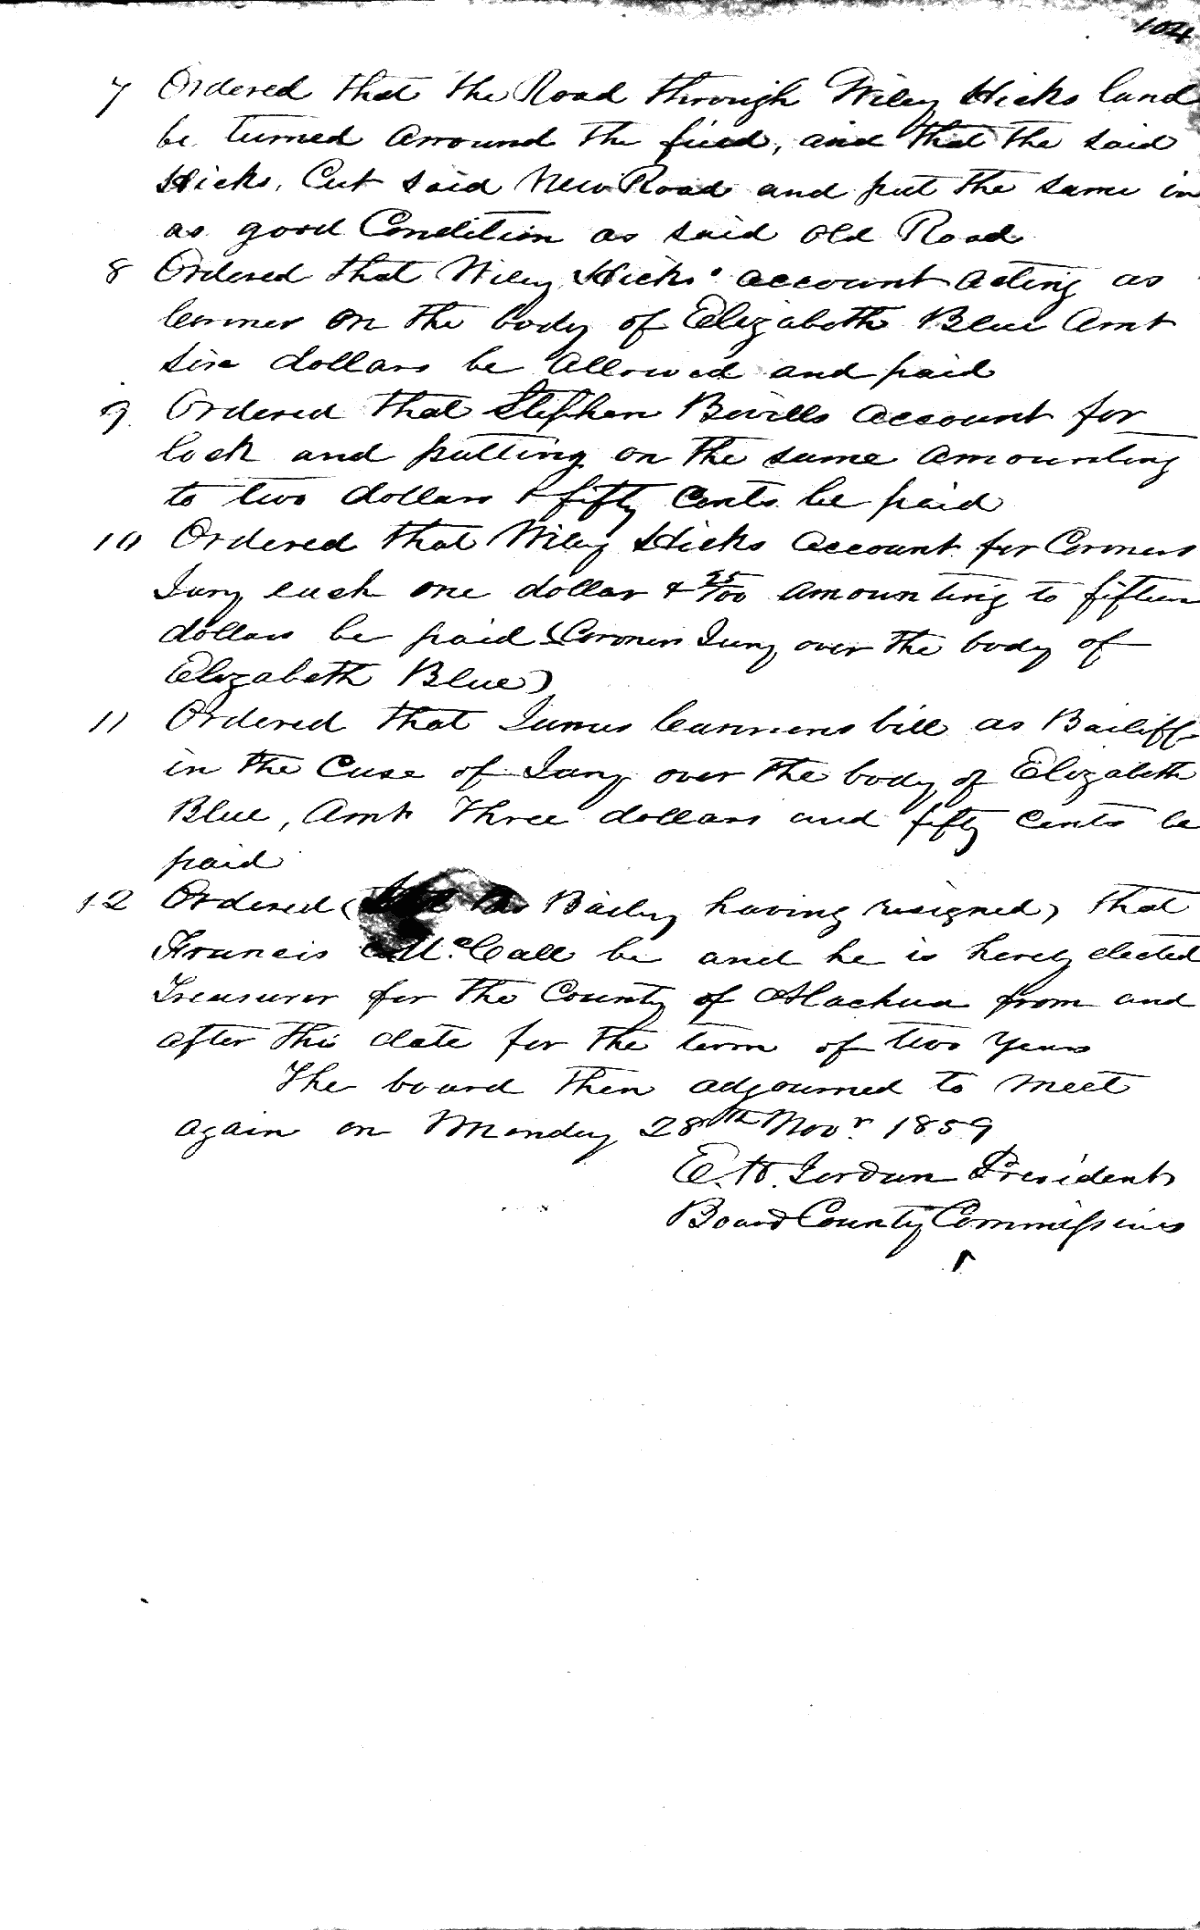 104
7 Ordered that the Road through Wiley Hicks land
be turned arround the field, and that the said
Hicks, Cut said New Road and put the same in
as good Condition as said old Road
8 Ordered that Wiley Hicks' account acting as
Coronor on the body of Elizabeth Blue Amt
Six dollars be allowed and paid
9. Ordered that Stephen Bevills account for
lock and putting on the same amounting
to two dollars & fifty Cents be paid
10 Ordered that Wiley Hicks account for Coroners
Jury each one dollar & 25/100 amounting to fifteen
dollars be paid (Coroners Jury over the body of
Elizabeth Blue)
11 Ordered that James bill as Bailiff
in the Case of Jury over the body of Elizabeth
Blue, Amt Three dollars and fifty Cents be
paid
12 Ordered ( Bailey having resigned) that
Francis McCall be and he is hereby elected
Treasurer for the County of Alachua from and
after this date for the term of two Years
The board then adjourned to meet
again on Monday 28th Novr. 1859
E. Jordan President
Board County Commissiners